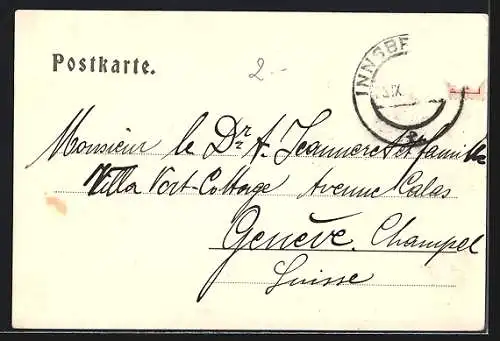 Postkarte.
2.-
INNSBR
IX
Monsieur le Dr. A. Jeanneret et famille
Villa Vort-Cottage Avenue Calas
Genève. Champel
Suisse